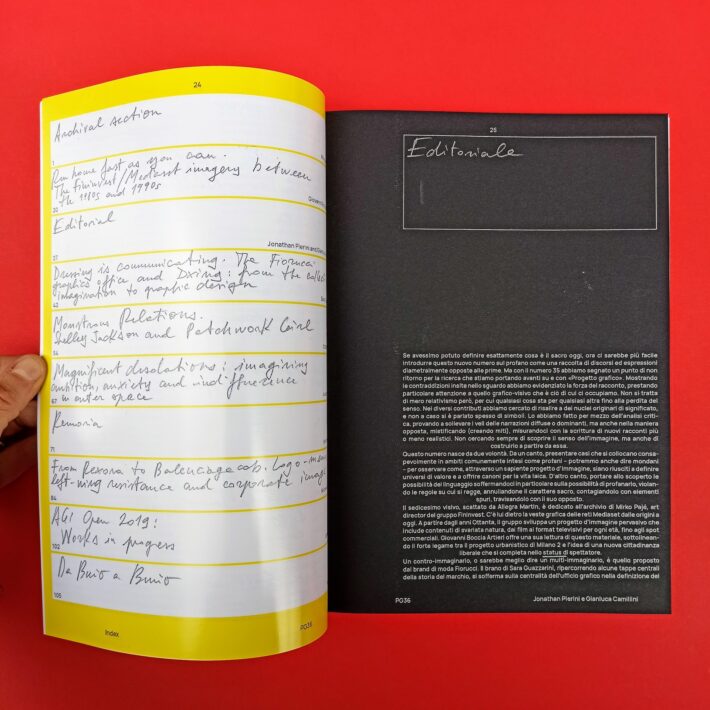 24
Archival section
1
Run home fast as you can.
The Fininvest/Mediaset imagery between
the 1980s and 1990s
20
Editorial
Jonathan Pierini and
27
Dressing is communicating. The Fiorucci
graphics office and Dxing: from the
imagination to graphic design
42
Monstrous Relations.
Shelley Jackson and Patchwork Girl
54
Magnificent desolations: imagining
ambition, anxiety and indifference
in outer space
67
Remoria
71
From Rexona to Balenciaga
left-wing resistance and corporate
84
AGI Open 2019:
Works in progress
102
Da Buio a Buio
105
Index
PG36
25
Editoriale
Se avessimo potuto definire esattamente cosa è il sacro oggi, ora ci sarebbe più facile
introdurre questo nuovo numero sul profano come una raccolta di discorsi ed espressioni
diametralmente opposte alle prime. Ma con il numero 35 abbiamo segnato un punto di non
ritorno per la ricerca che stiamo portando avanti su e con «Progetto grafico». Mostrando
le contraddizioni insite nello sguardo abbiamo evidenziato la forza del racconto, prestando
particolare attenzione a quello grafico-visivo che è ciò di cui ci occupiamo. Non si tratta
di mero relativismo però, per cui qualsiasi cosa sta per qualsiasi altra fino alla perdita del
senso. Nei diversi contributi abbiamo cercato di risalire a dei nuclei originari di significato,
e non a caso si è parlato spesso di simboli. Lo abbiamo fatto per mezzo dell'analisi criti-
ca, provando a sollevare i veli delle narrazioni diffuse o dominanti, ma anche nella maniera
opposta, mistificando (creando miti), misurandoci con la scrittura di nuovi racconti più
o meno realistici. Non cercando sempre di scoprire il senso dell'immagine, ma anche di
costruirlo a partire da essa.
Questo numero nasce da due volontà. Da un canto, presentare casi che si collocano consa-
pevolmente in ambiti comunemente intesi come profani – potremmo anche dire mondani
– per osservare come, attraverso un sapiente progetto d'immagine, siano riusciti a definire
universi di valore e a offrire canoni per la vita laica. D'altro canto, portare allo scoperto le
possibilità del linguaggio soffermandoci in particolare sulla possibilità di profanarlo, violan-
do le regole su cui si regge, annullandone il carattere sacro, contagiandolo con elementi
spuri, travisandolo con il suo opposto.
Il sedicesimo visivo, scattato da Allegra Martin, è dedicato all'archivio di Mirko Pajé, art
director del gruppo Fininvest. C'è lui dietro la veste grafica delle reti Mediaset dalle origini a
oggi. A partire dagli anni Ottanta, il gruppo sviluppa un progetto d'immagine pervasivo che
include contenuti di svariata natura, dai film ai format televisivi per ogni età, fino agli spot
commerciali. Giovanni Boccia Artieri offre una sua lettura di questo materiale, sottolinean-
do il forte legame tra il progetto urbanistico di Milano 2 e l'idea di una nuova cittadinanza
liberale che si completa nello status di spettatore.
Un contro-immaginario, o sarebbe meglio dire un multi-immaginario, è quello proposto
dal brand di moda Fiorucci. Il brano di Sara Guazzarini, ripercorrendo alcune tappe centrali
della storia del marchio, si sofferma sulla centralità dell'ufficio grafico nella definizione del
PG36
Jonathan Pierini e Gianluca Camillini